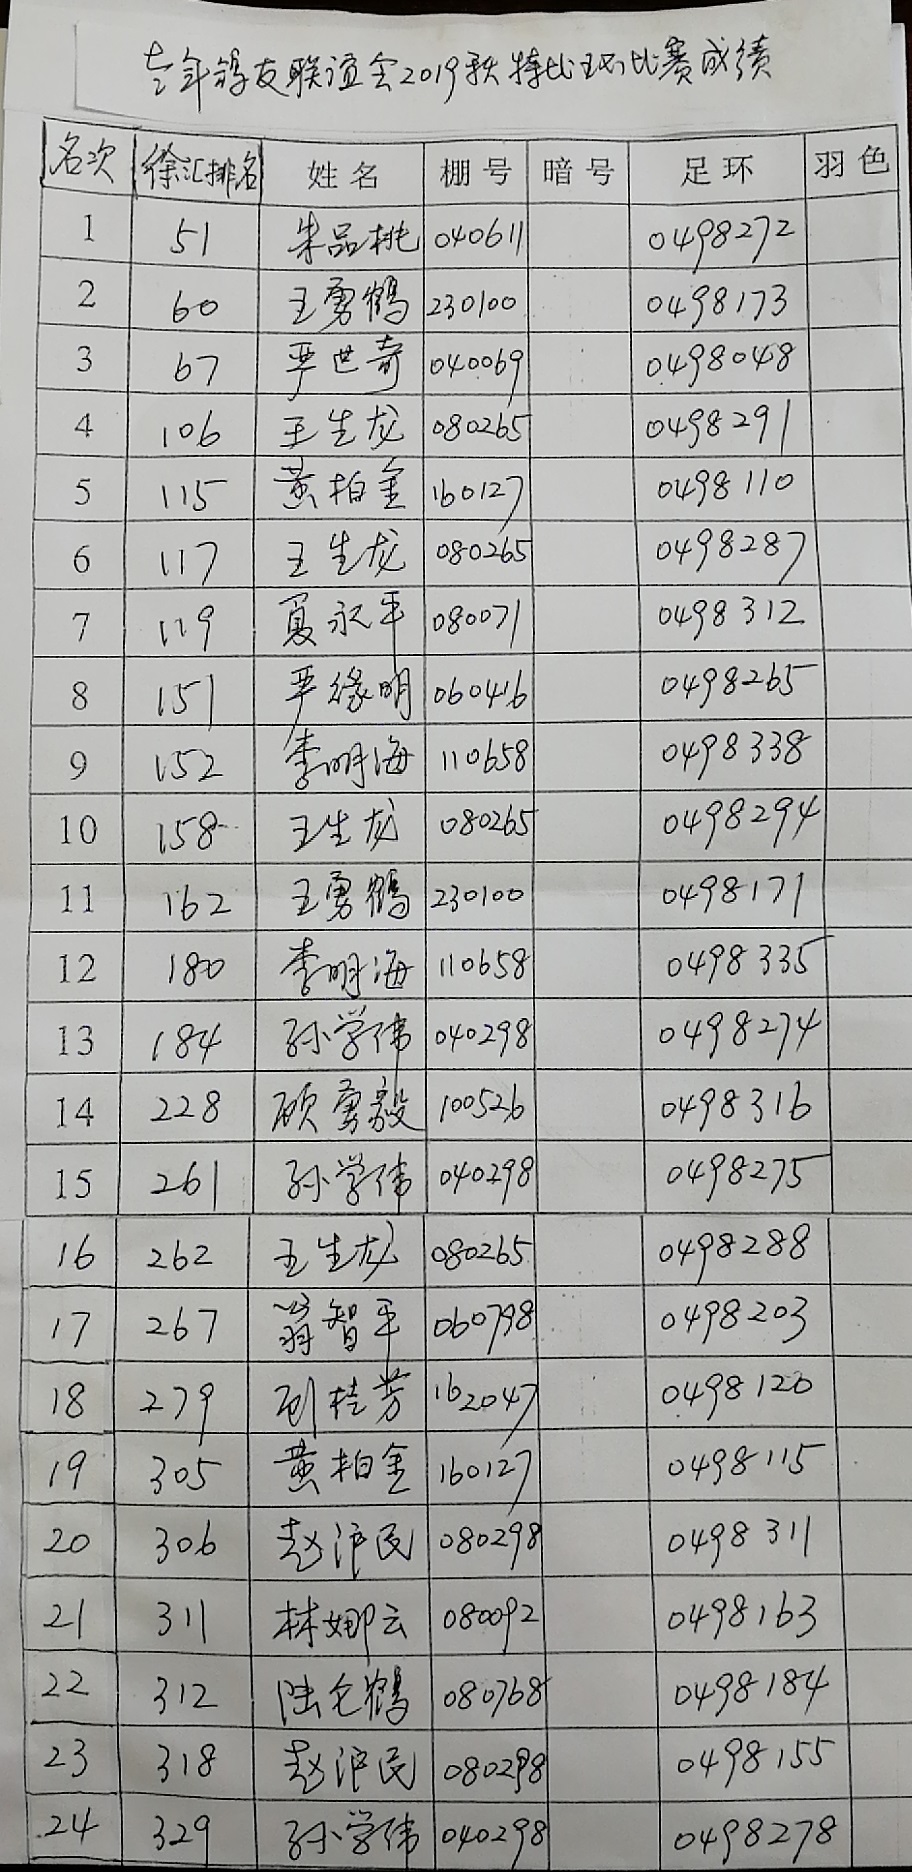 老年鸽友联谊会2019秋特比环比赛成绩
名次 徐汇排名 姓名 棚号 暗号 足环 羽色
1 51 朱品桃 040611 0498272
2 60 王勇鹤 230100 0498173
3 67 严世奇 040069 0498048
4 106 王生龙 080265 0498291
5 115 黄柏金 160127 0498110
6 117 王生龙 080265 0498287
7 119 夏永平 080071 0498312
8 151 严缘明 060416 0498265
9 152 李明海 110658 0498338
10 158 王生龙 080265 0498294
11 162 王勇鹤 230100 0498171
12 180 李明海 110658 0498335
13 184 孙学伟 040298 0498274
14 228 顾勇毅 100526 0498316
15 261 孙学伟 040298 0498275
16 262 王生龙 080265 0498288
17 267 翁智平 060798 0498203
18 279 刘桂芳 162047 0498120
19 305 黄柏金 160127 0498115
20 306 赵沪民 080298 0498311
21 311 林娜云 080092 0498163
22 312 陆仑鹤 080768 0498184
23 318 赵沪民 080298 0498155
24 329 孙学伟 040298 0498278